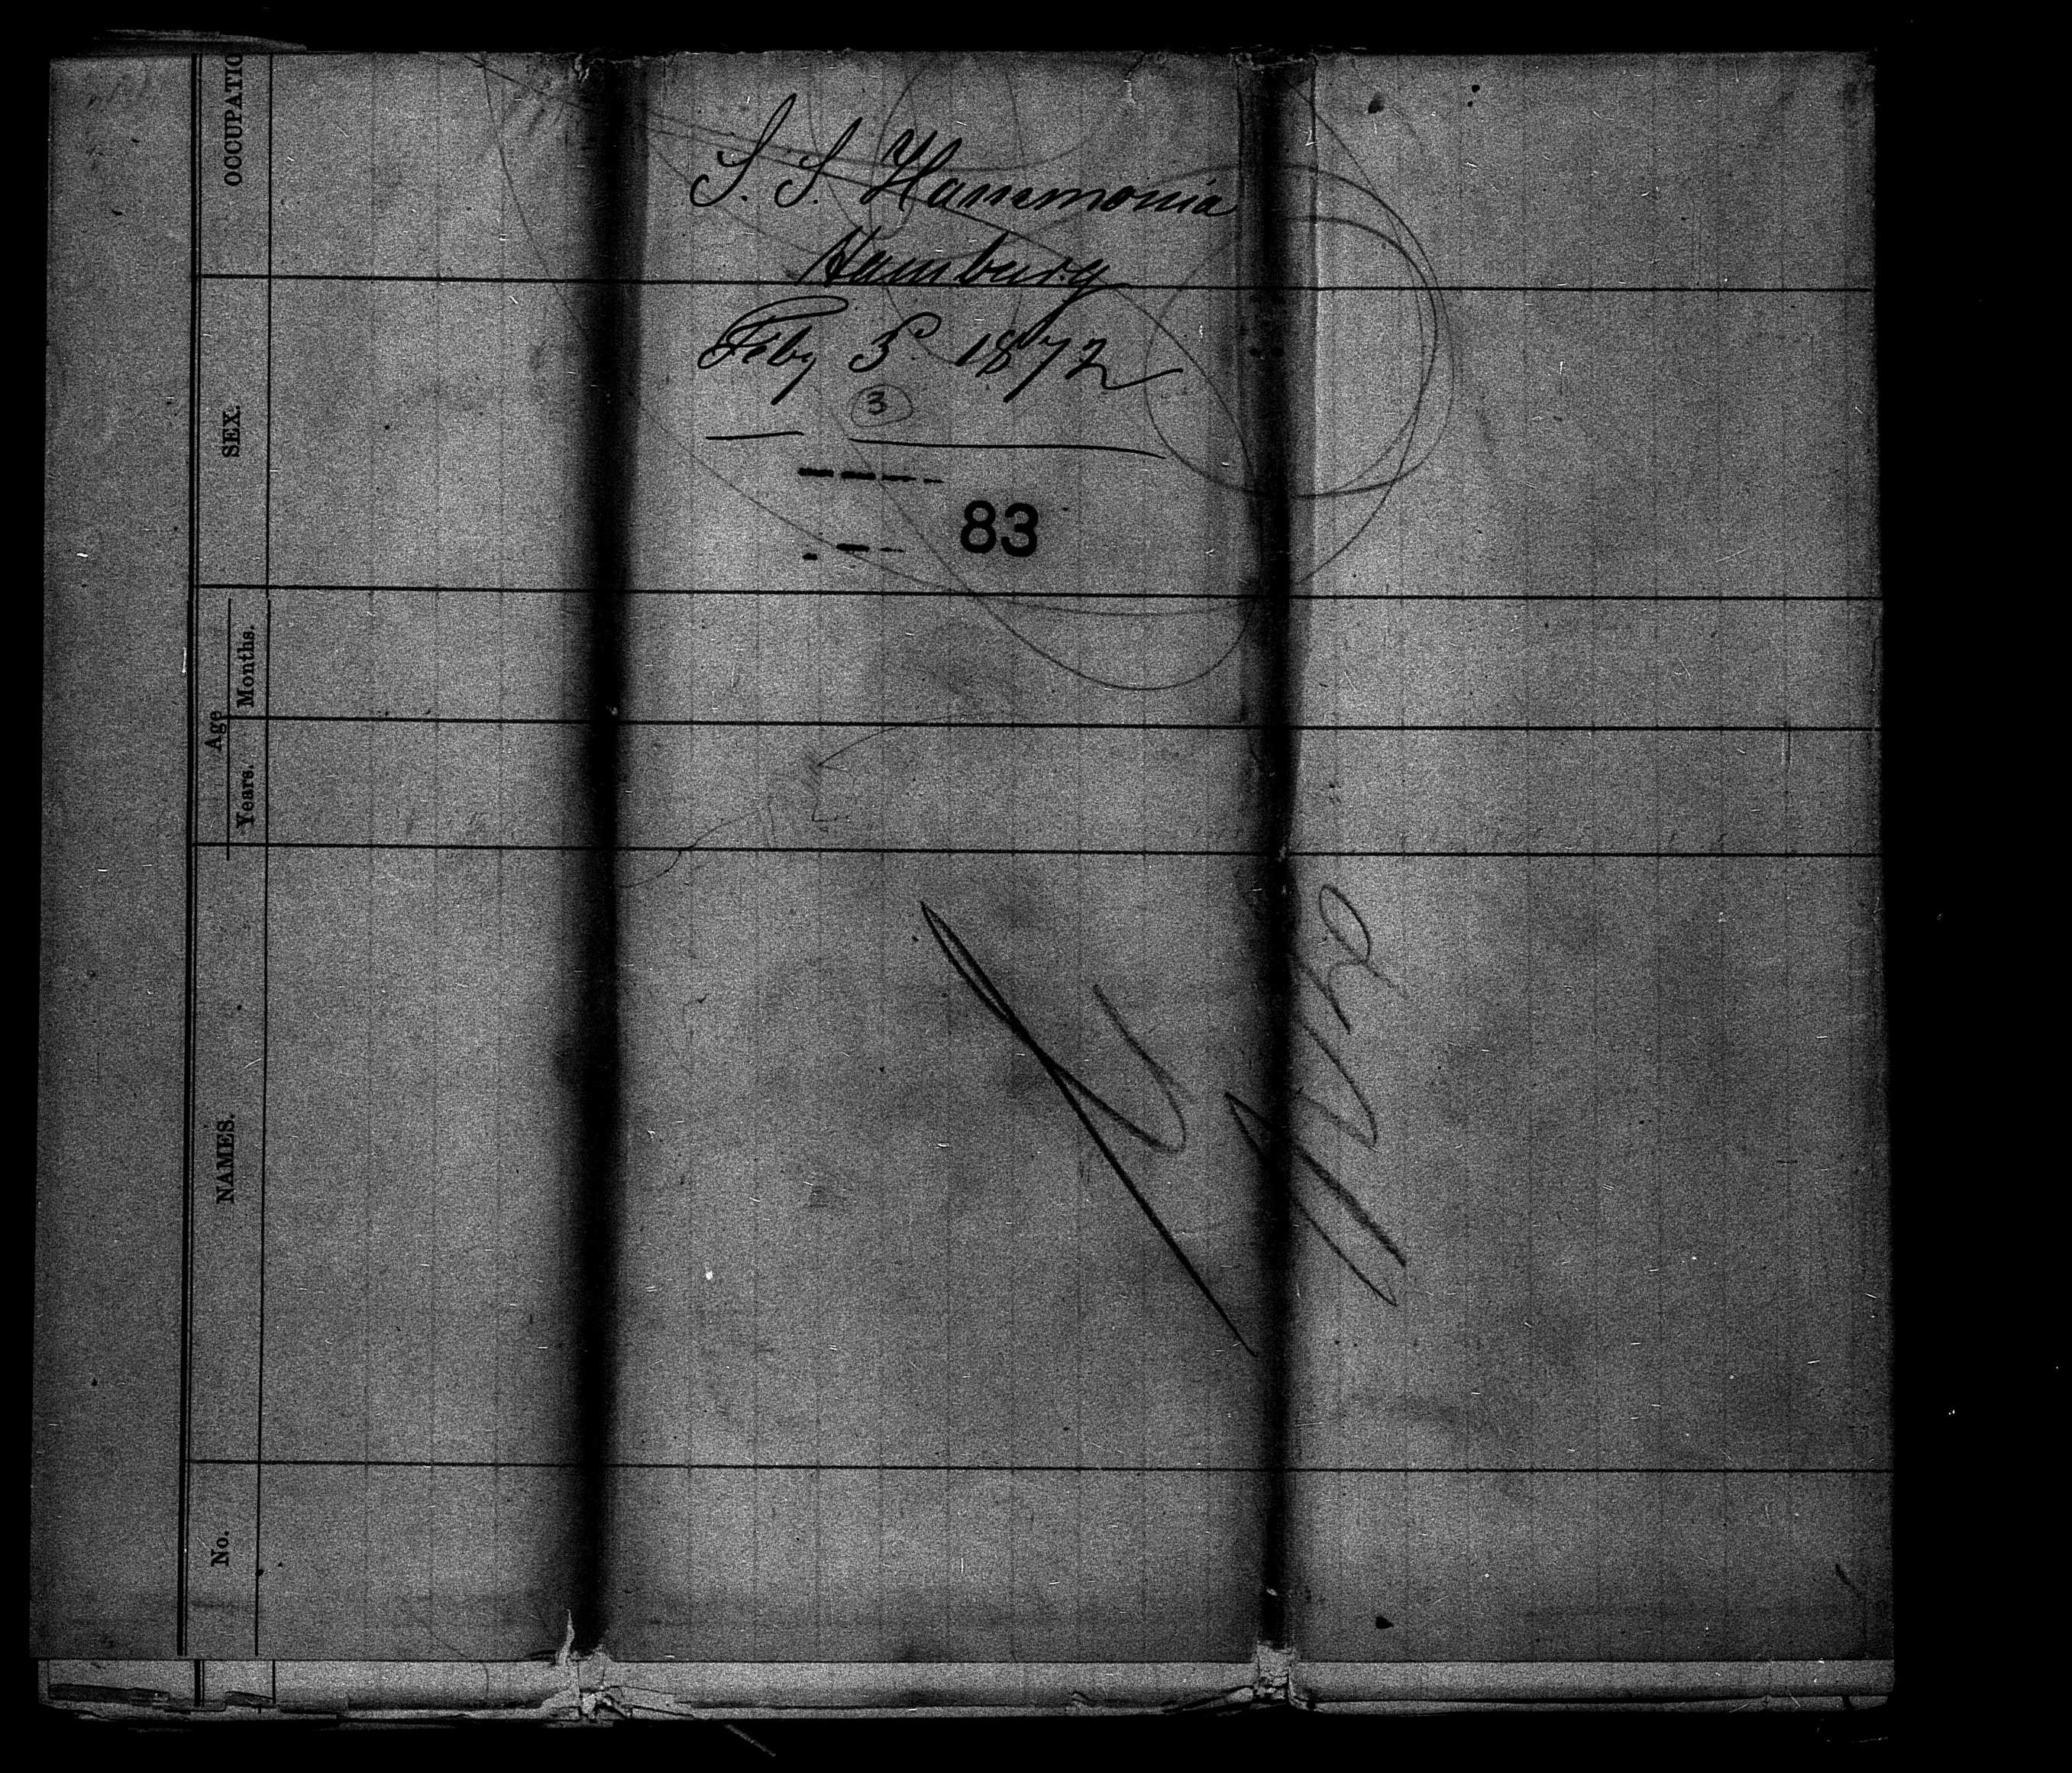 S. S. Hammonia
Hamburg
Feby 3 1872
3
83
OCCUPATIO
SEX.
Age
Months.
Years.
NAMES.
No.